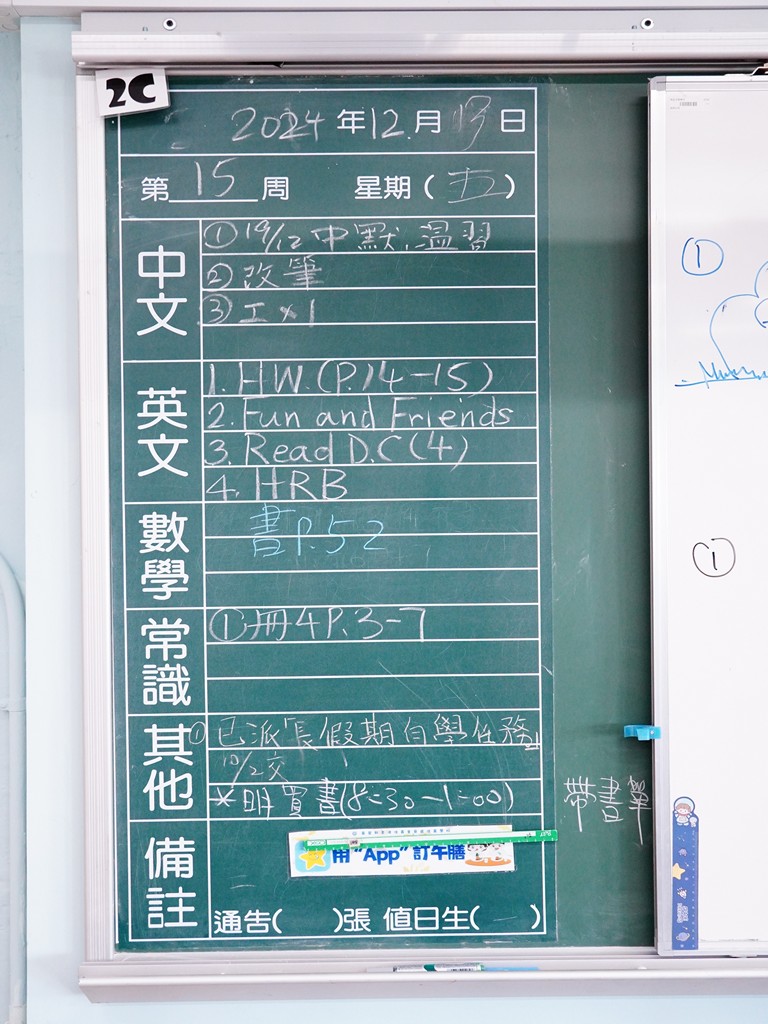 2C
2024年12月13日
第15周 星期(五)
中文
①19/12中默,溫習
②改筆
③工×1
英文
1. HW.(P.14-15)
2. Fun and Friends
3. Read D.C(4)
4. HRB
數學
書P.52
常識
①冊4P.3-7
其他
①已派「長假期自學任務」
10/2交
*明買書(8:30-1:00)
帶書單
備註
用“App”訂午膳
通告( )張 值日生( )
①
①